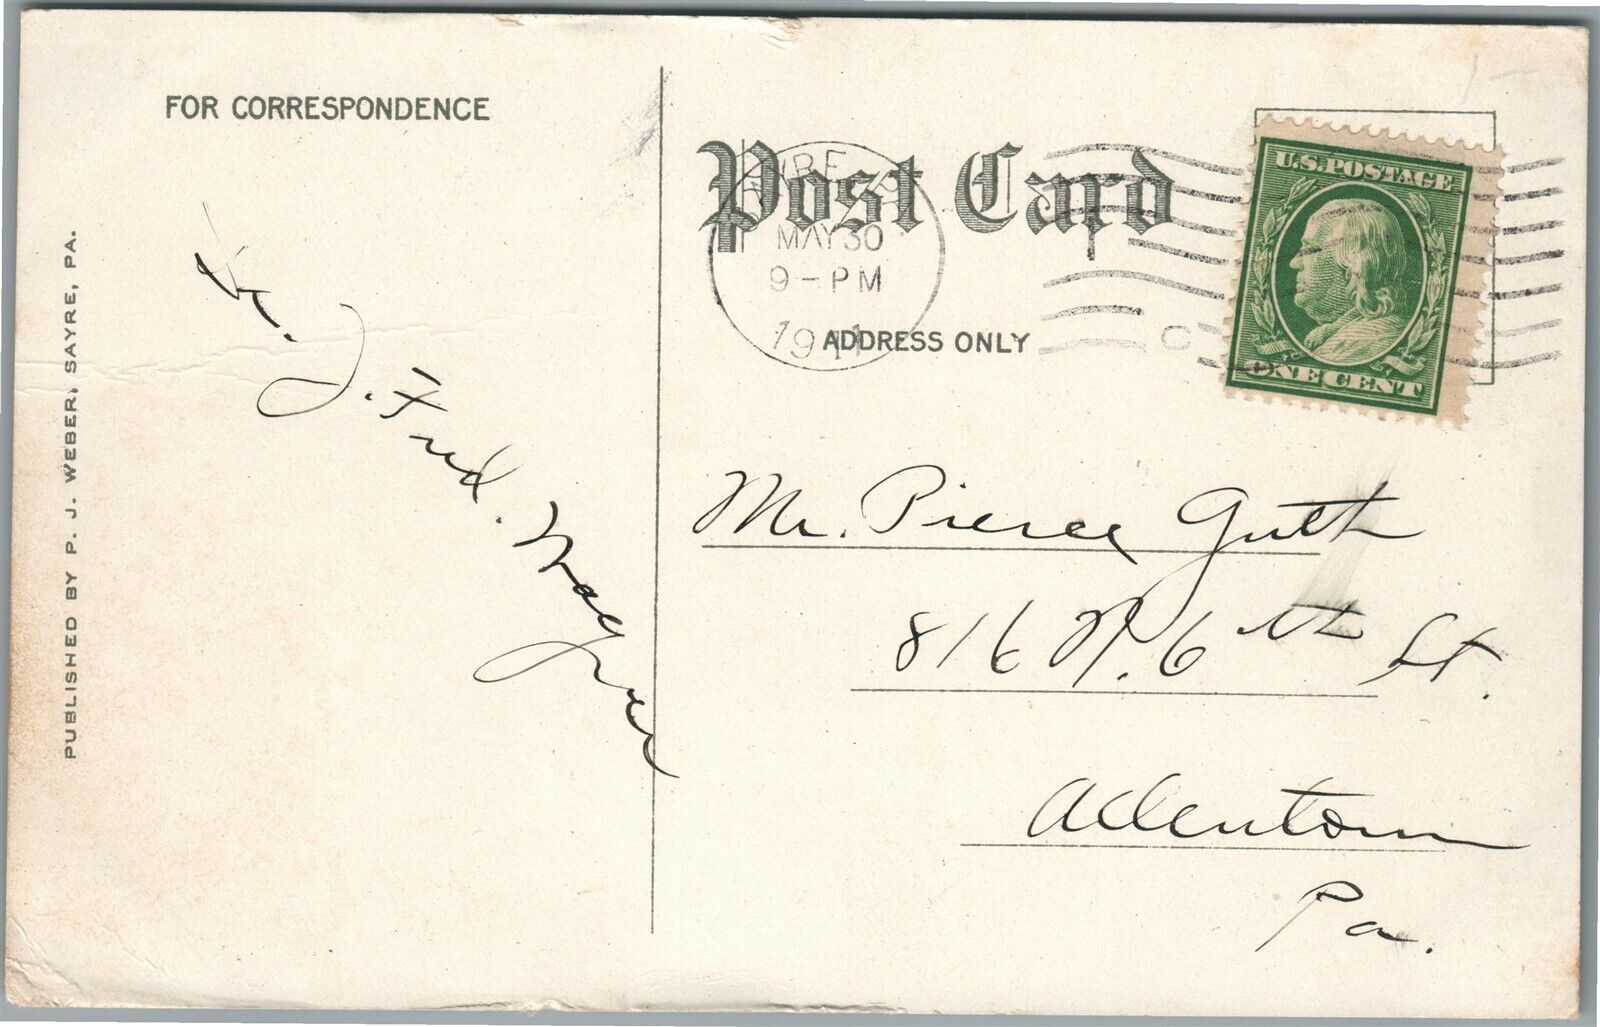 FOR CORRESPONDENCE
J. Fred. Wagner
PUBLISHED BY P. J. WEBER, SAYRE, PA.
Post Card
MAY 30
9 - PM
1911
ADDRESS ONLY
U.S. POSTAGE
ONE CENT
Mr. Pierce Guth
816 N. 6th St.
Allentown
Pa.